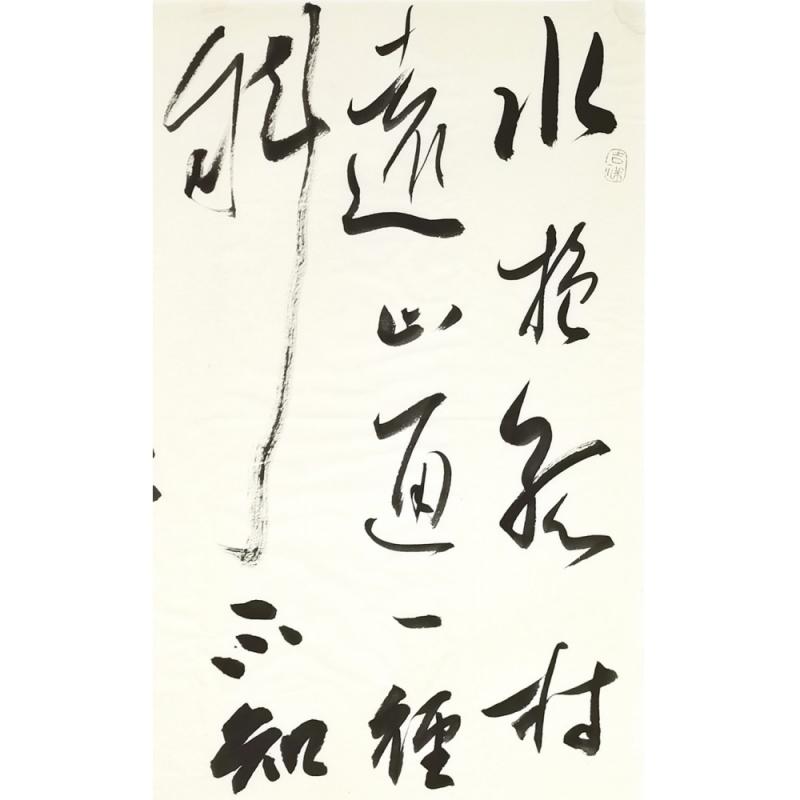 水抱孤村
遠山通一徑
斜不知